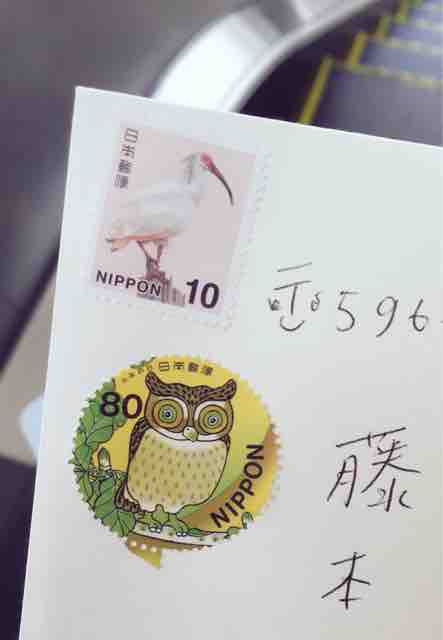 日本郵便
NIPPON 10
日本郵便
80
NIPPON
〠596
藤
本